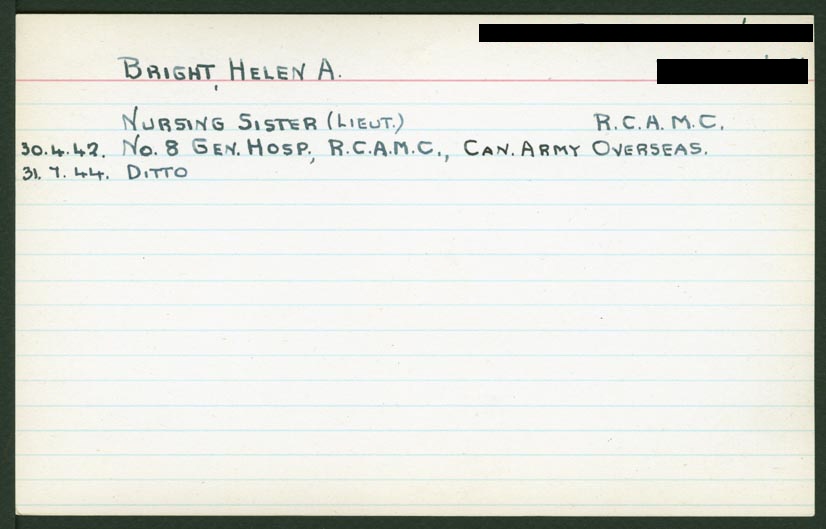 BRIGHT, HELEN A.
NURSING SISTER (LIEUT.) R.C.A.M.C.
30.4.42. NO. 8 GEN. HOSP., R.C.A.M.C., CAN. ARMY OVERSEAS.
31.7.44. DITTO